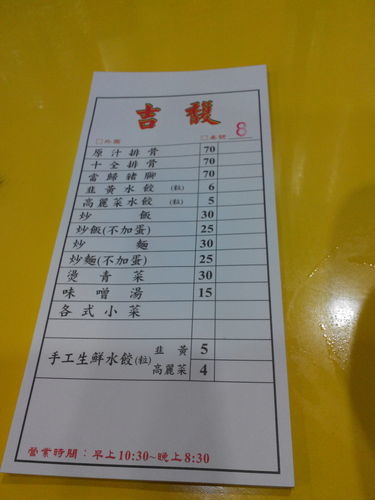 吉 馥
□外園 □桌號 8
原汁排骨 70
十全排骨 70
當歸豬腳 70
韭黃水餃(粒) 6
高麗菜水餃(粒) 5
炒飯 30
炒飯(不加蛋) 25
炒麵 30
炒麵(不加蛋) 25
燙青菜 30
味噌湯 15
各式小菜
手工生鮮水餃(粒) 韭黃 5
高麗菜 4
營業時間：早上10:30~晚上8:30